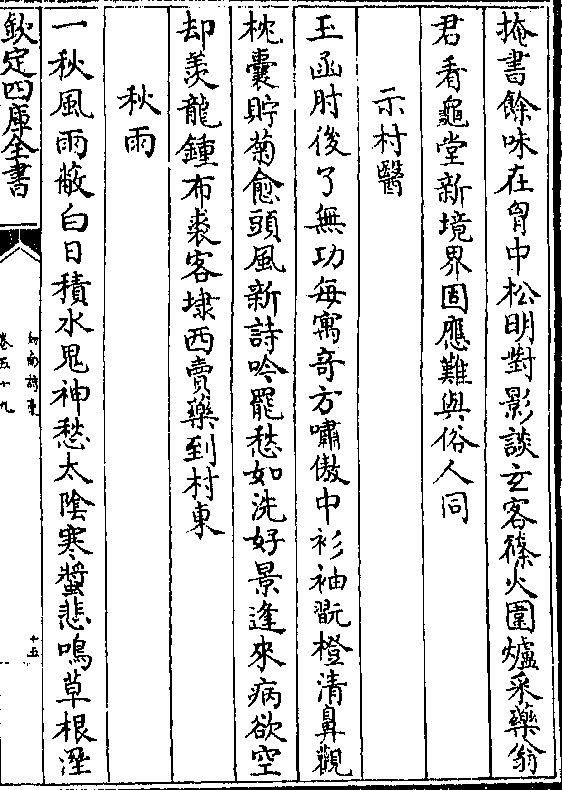 掩書餘味在胷中松明對影談玄客篠火圍爐采藥翁
君看龜堂新境界固應難與俗人同
示村醫
玉函肘後了無功每寓竒方嘯傲中衫袖翫橙清鼻觀
枕囊貯菊愈頭風新詩吟罷愁如洗好景逢來病欲空
却羨龍鍾布裘客埭西賣藥到村東
秋雨
一秋風雨蔽白日積水鬼神愁太陰寒螿悲鳴草根溼
欽定四庫全書
劍南詩稾
卷五十九
十五